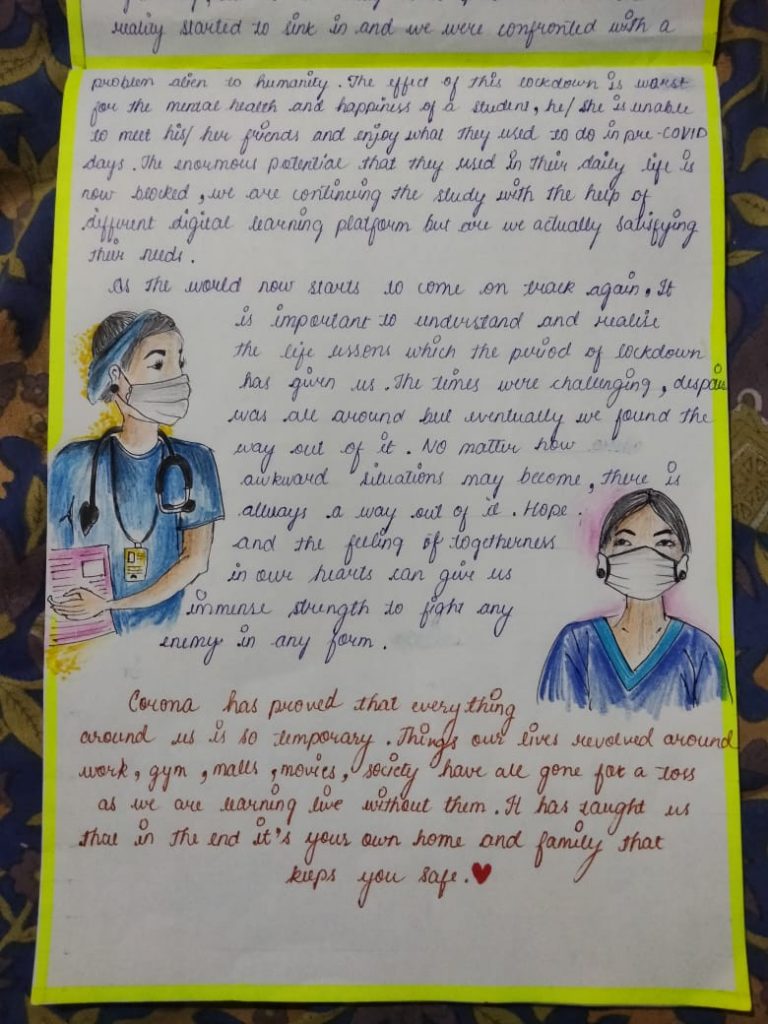 reality started to sink in and we were confronted with a
problem alien to humanity. The effect of this lockdown is worst
for the mental health and happiness of a student, he/she is unable
to meet his/her friends and enjoy what they used to do in pre-COVID
days. The enormous potential that they used in their daily life is
now blocked, we are continuing the study with the help of
different digital learning platform but are we actually satisfying
their needs.
As the world now starts to come on track again, It
is important to understand and realise
the life lessons which the period of lockdown
has given us. The times were challenging, despair
was all around but eventually we found the
way out of it. No matter how
awkward situations may become, there is
always a way out of it. Hope
and the feeling of togetherness
in our hearts can give us
immense strength to fight any
enemy in any form.
Corona has proved that everything
around us is so temporary. Things our lives revolved around
work, gym, malls, movies, society have all gone for a toss
as we are learning live without them. It has taught us
that in the end it's your own home and family that
keeps you safe.